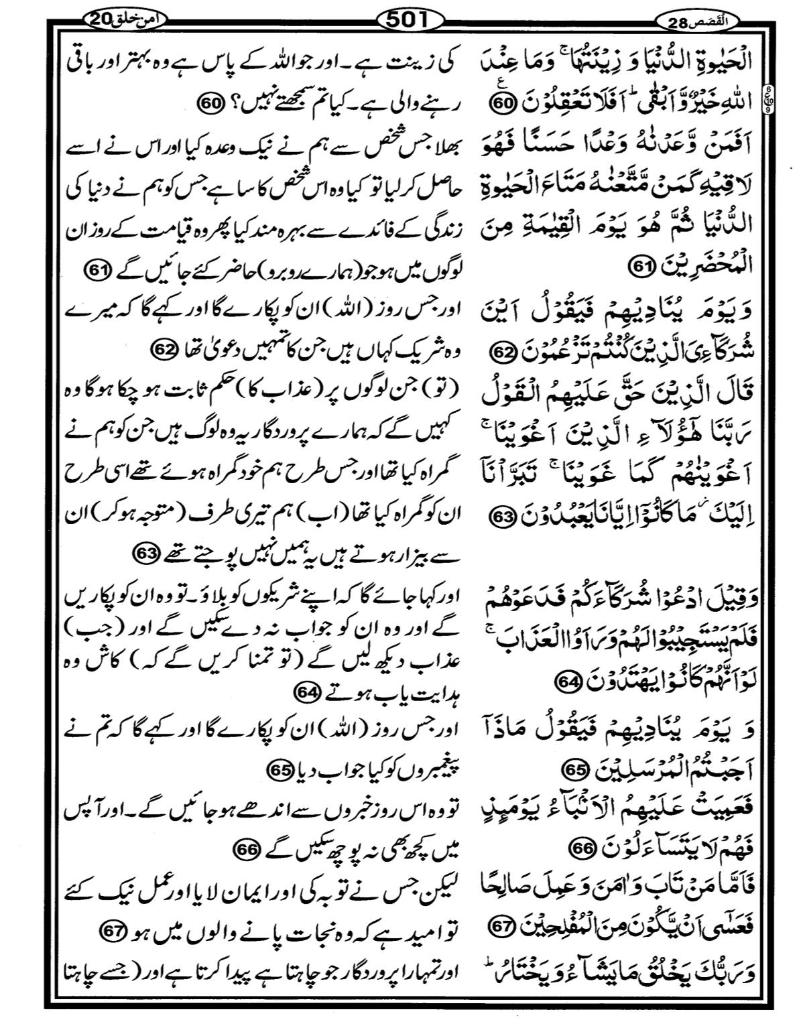 القصص 28
501
امن خلق 20
الْحَيٰوةِ الدُّنْيَا وَ زِيْنَتُهَا ۚ وَمَا عِنْدَ
اللّٰهِ خَيْرٌ وَّاَبْقٰى ؕ اَفَلَا تَعْقِلُوْنَ ﴿60﴾ ع
اَفَمَنْ وَّعَدْنٰهُ وَعْدًا حَسَنًا فَهُوَ
لَاقِيْهِ كَمَنْ مَّتَّعْنٰهُ مَتَاعَ الْحَيٰوةِ
الدُّنْيَا ثُمَّ هُوَ يَوْمَ الْقِيٰمَةِ مِنَ
الْمُحْضَرِيْنَ ﴿61﴾
وَ يَوْمَ يُنَادِيْهِمْ فَيَقُوْلُ اَيْنَ
شُرَكَآءِىَ الَّذِيْنَ كُنْتُمْ تَزْعُمُوْنَ ﴿62﴾
قَالَ الَّذِيْنَ حَقَّ عَلَيْهِمُ الْقَوْلُ
رَبَّنَا هٰٓؤُلَآءِ الَّذِيْنَ اَغْوَيْنَا ۚ
اَغْوَيْنٰهُمْ كَمَا غَوَيْنَا ۚ تَبَرَّاْنَآ
اِلَيْكَ ؗ مَا كَانُوْٓا اِيَّانَا يَعْبُدُوْنَ ﴿63﴾
وَقِيْلَ ادْعُوْا شُرَكَآءَكُمْ فَدَعَوْهُمْ
فَلَمْ يَسْتَجِيْبُوْا لَهُمْ وَرَاَوُا الْعَذَابَ ۚ
لَوْ اَنَّهُمْ كَانُوْا يَهْتَدُوْنَ ﴿64﴾
وَ يَوْمَ يُنَادِيْهِمْ فَيَقُوْلُ مَاذَآ
اَجَبْتُمُ الْمُرْسَلِيْنَ ﴿65﴾
فَعَمِيَتْ عَلَيْهِمُ الْاَنْۢبَآءُ يَوْمَىِٕذٍ
فَهُمْ لَا يَتَسَآءَلُوْنَ ﴿66﴾
فَاَمَّا مَنْ تَابَ وَاٰمَنَ وَعَمِلَ صَالِحًا
فَعَسٰٓى اَنْ يَّكُوْنَ مِنَ الْمُفْلِحِيْنَ ﴿67﴾
وَرَبُّكَ يَخْلُقُ مَا يَشَآءُ وَيَخْتَارُ ؕ
کی زینت ہے۔ اور جو اللہ کے پاس ہے وہ بہتر اور باقی
رہنے والی ہے۔ کیا تم سمجھتے نہیں؟ ﴿60﴾
بھلا جس شخص سے ہم نے نیک وعدہ کیا اور اس نے اسے
حاصل کر لیا تو کیا وہ اس شخص کا سا ہے جس کو ہم نے دنیا کی
زندگی کے فائدے سے بہرہ مند کیا پھر وہ قیامت کے روز ان
لوگوں میں ہو جو (ہمارے روبرو) حاضر کئے جائیں گے ﴿61﴾
اور جس روز (اللہ) ان کو پکارے گا اور کہے گا کہ میرے
وہ شریک کہاں ہیں جن کا تمہیں دعویٰ تھا ﴿62﴾
(تو) جن لوگوں پر (عذاب کا) حکم ثابت ہو چکا ہوگا وہ
کہیں گے کہ ہمارے پروردگار یہ وہ لوگ ہیں جن کو ہم نے
گمراہ کیا تھا اور جس طرح ہم خود گمراہ ہوئے تھے اسی طرح
ان کو گمراہ کیا تھا (اب) ہم تیری طرف (متوجہ ہو کر) ان
سے بیزار ہوتے ہیں یہ ہمیں نہیں پوجتے تھے ﴿63﴾
اور کہا جائے گا کہ اپنے شریکوں کو بلاؤ۔ تو وہ ان کو پکاریں
گے اور وہ ان کو جواب نہ دے سکیں گے اور (جب)
عذاب دیکھ لیں گے (تو تمنا کریں گے کہ) کاش وہ
ہدایت یاب ہوتے ﴿64﴾
اور جس روز (اللہ) ان کو پکارے گا اور کہے گا کہ تم نے
پیغمبروں کو کیا جواب دیا ﴿65﴾
تو وہ اس روز خبروں سے اندھے ہو جائیں گے۔ اور آپس
میں کچھ بھی نہ پوچھ سکیں گے ﴿66﴾
لیکن جس نے توبہ کی اور ایمان لایا اور عمل نیک کئے
تو امید ہے کہ وہ نجات پانے والوں میں ہو ﴿67﴾
اور تمہارا پروردگار جو چاہتا ہے پیدا کرتا ہے اور (جسے چاہتا